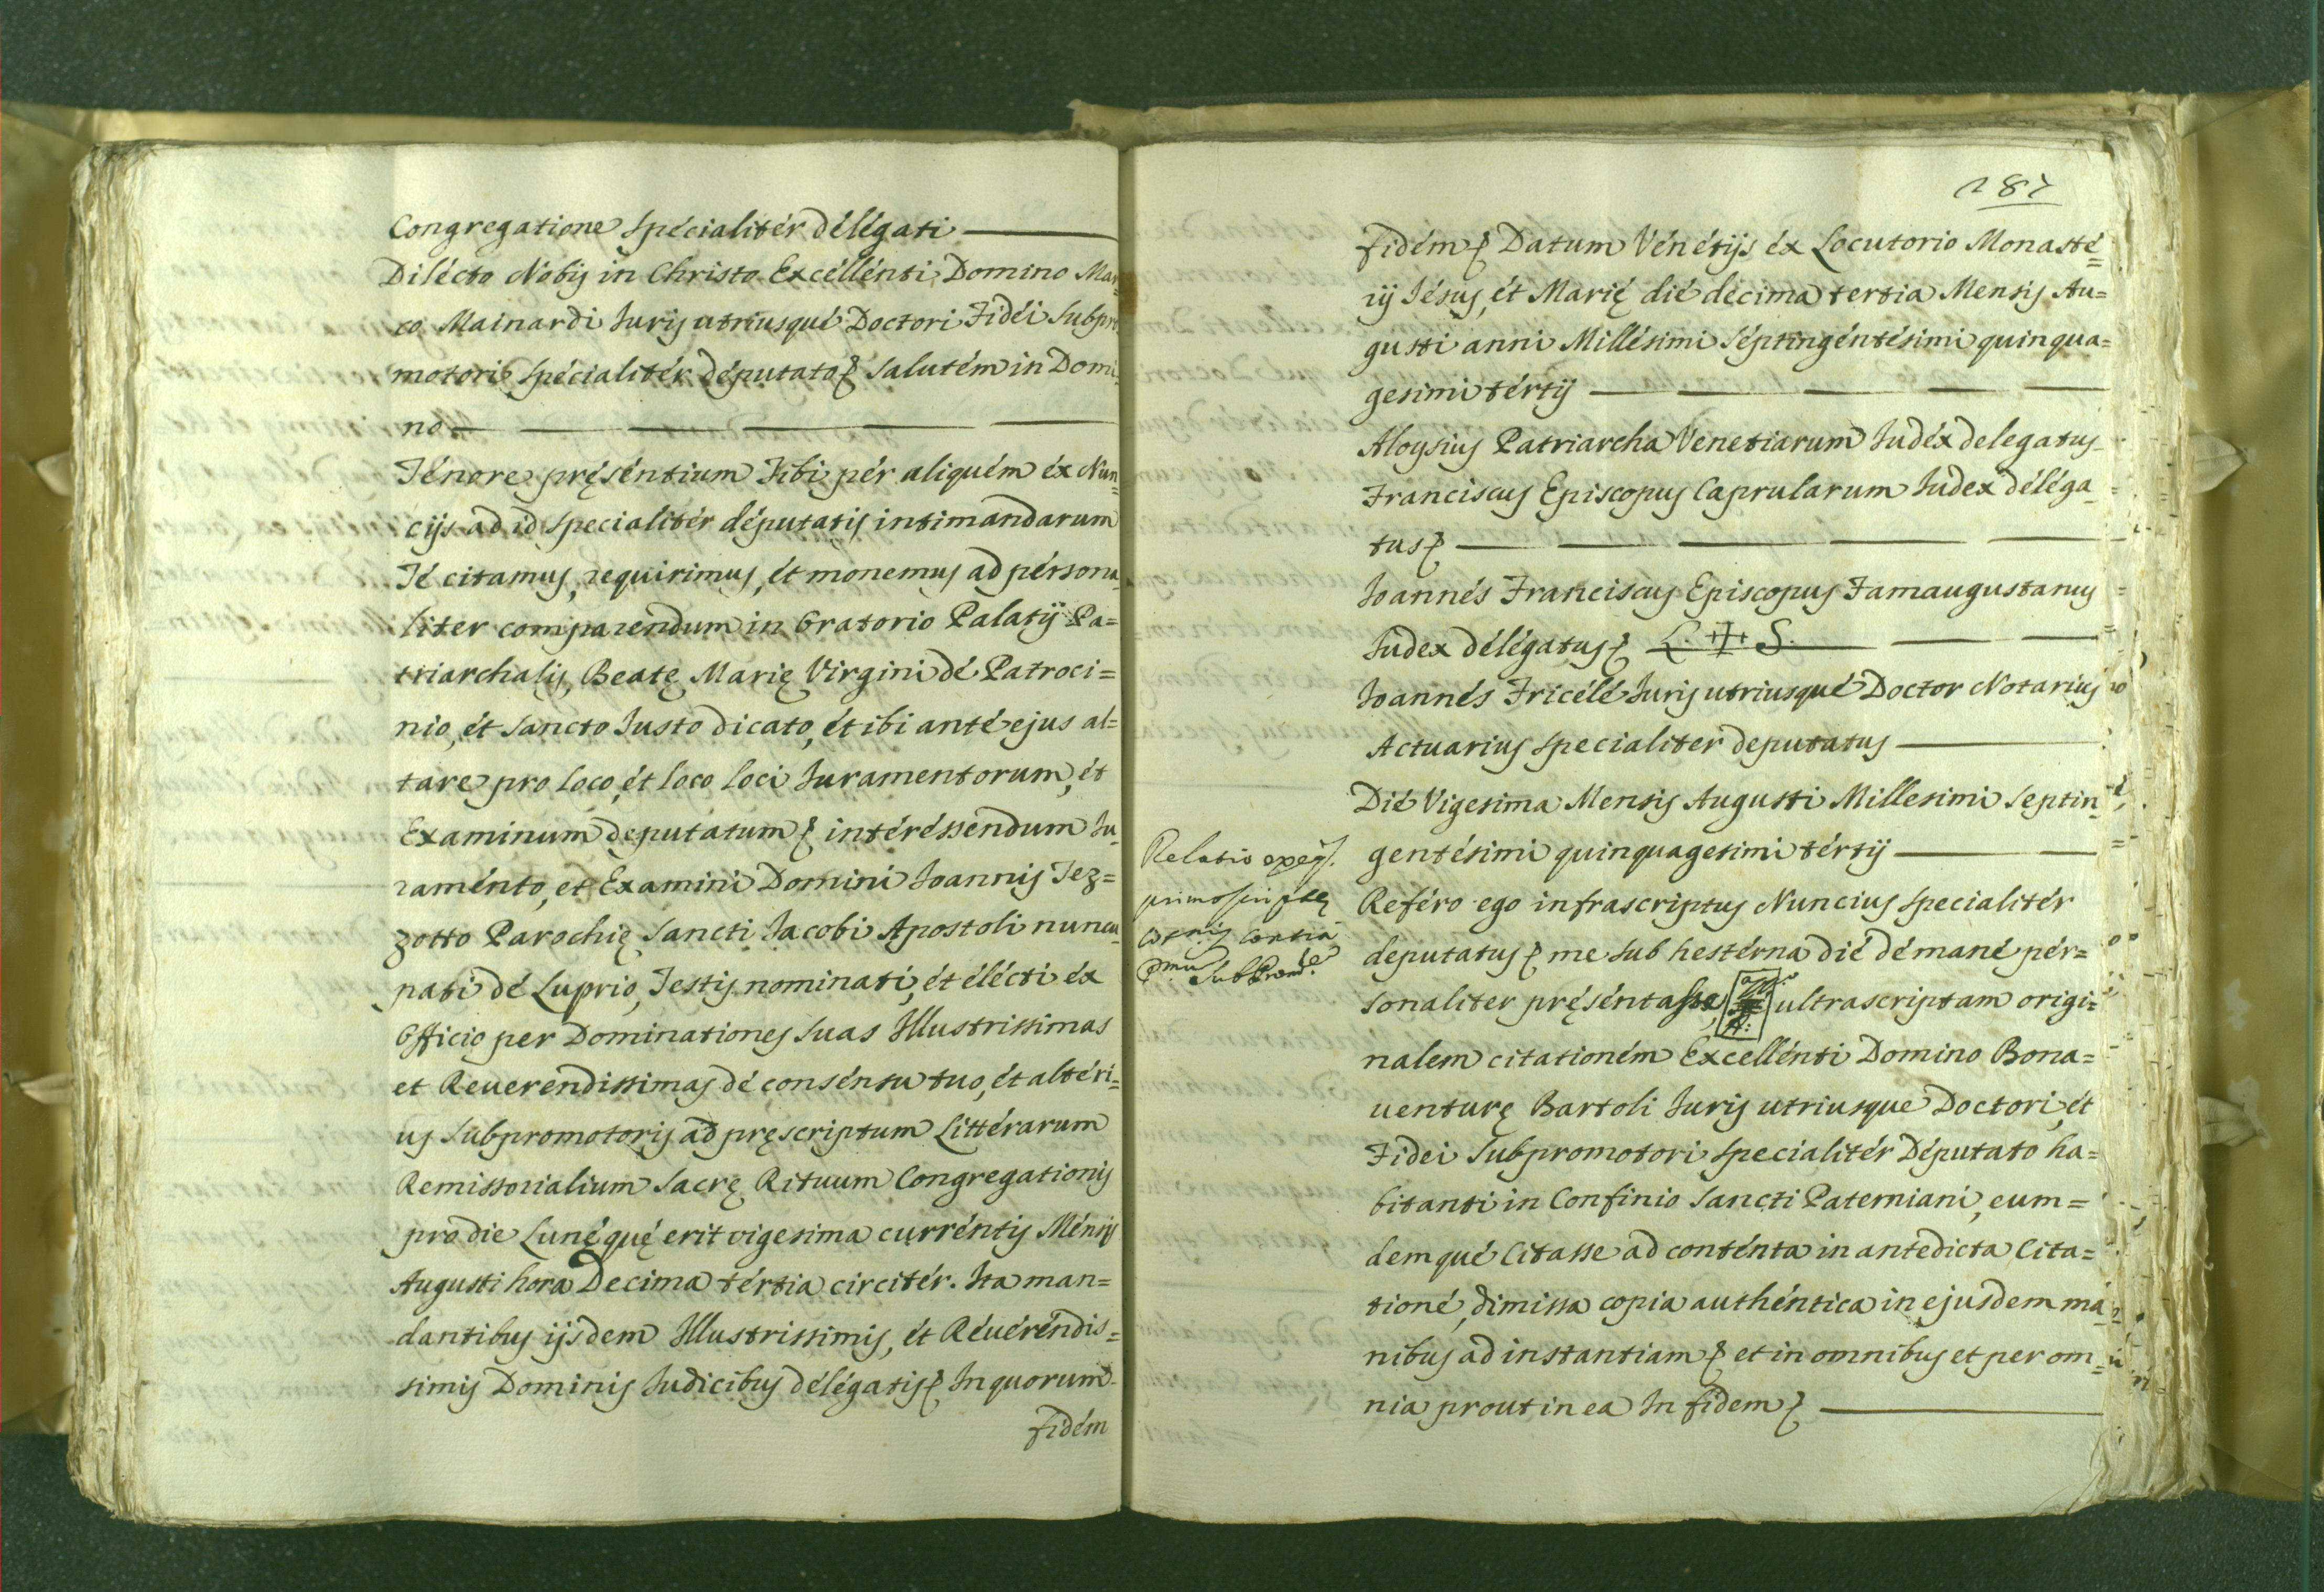 Congregatione specialitér délégati
Dilécto Nobis in Christo Excéllénti Domino Mar
co Mainardi Juris utriusqué Doctori Fidéi Subpro
motori spécialitér députato salutém in Domi
no
Ténore pręséntium Tibi pér aliquém éx Nun=
cijs ad id specialitér députatis intimandarum
Té citamus, requirimus, ét monemus ad pérsona
liter comparendum in Oratorio Palatij Pa=
triarchalis, Beatę Marię Virgini dé Patroci=
nio, ét Sancto Justo dicato, ét ibi anté ejus al=
tare pro loco, ét loco loci Juramentorum, ét
Examinum deputatum intéréssendum Ju=
raménto, et Examini Domini Joannis Tez=
zotto Parochię Sancti Jacobi Apostoli nuncu
pati dé Luprio, Testis nominati, ét élécti éx
Officio per Dominationes suas Illustrissimas
et Reuerendissimas dé consénsu tuo, ét altéri=
us Subpromotoris ad pręscriptum Littérarum
Remissorialium Sacrę Rituum Congregationis
pro die Lunę quę erit vigesima curréntis Ménsis
Augusti hora Decima tértia circitér. Ita man=
dantibus ijsdem Illustrissimis, ét Réuéréndis=
simis Dominis Judicibus délégatis In quorum
fidém
287
fidém Datum Vénétijs éx Locutorio Monasté=
rij Jésus, ét Marię dié décima tertia Mensis Au=
gusti anni Millésimi séptingéntésimi quinqua=
gesimi tértij
Aloysius Patriarcha Venetiarum Judéx delegatus
Franciscus Episcopus Caprularum Judex déléga=
tus
Joannés Franciscus Episcopus Famaugustanus
Judex délégatus L. + S.
Joannés Tricélé Juris utriusqué Doctor Notarius
Actuarius specialiter deputatus
Dié Vigesima Mensis Augusti Millesimi septin=
gentésimi quinquagesimi tértij
Relatio
Subprom.
Reféro ego infrascriptus Nuncius specialitér
deputatus me sub hestérna dié dé mané pér=
sonaliter pręséntasse, ultrascriptam origi=
nalem citationém Excellénti Domino Bona=
uenturę Bartoli Juris utriusque Doctori, ét
Fidei Subpromotori specialitér Députato ha=
bitanti in Confinio Sancti Paterniani, eum=
demqué Citasse ad conténta in antedicta Cita=
tioné, dimissa copia authéntica in ejusdem ma=
nibus ad instantiam et in omnibus et per om=
nia prout in ea In fidem